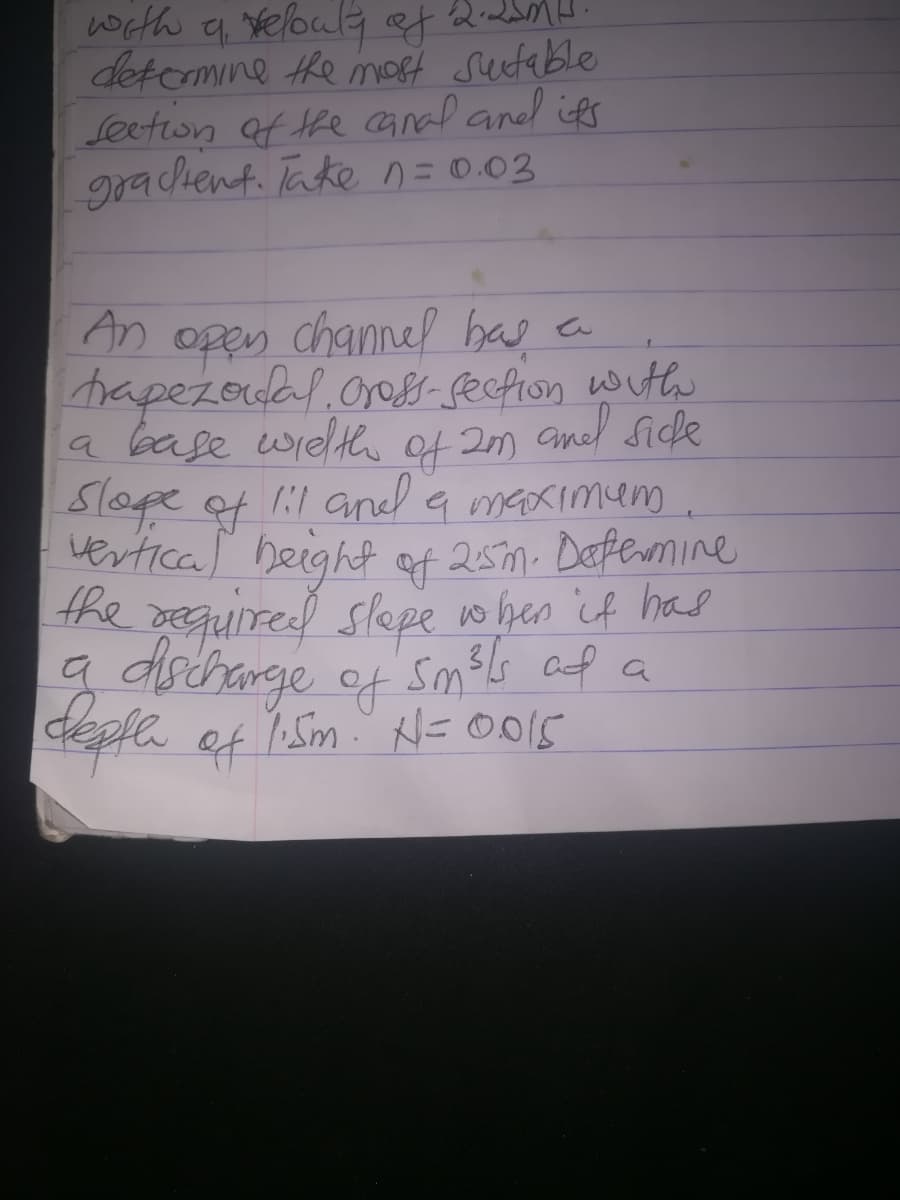 with a velocity of 2.25m/s.
determine the most suitable
section of the canal and its
gradient. Take n = 0.03
An open channel has a
trapezoidal cross-section with
a base width of 2m and side
slope of 1:1 and a maximum
vertical height of 2.5m. Determine
the required slope when it has
a discharge of 5m³/s at a
depth of 1.5m. N = 0.015